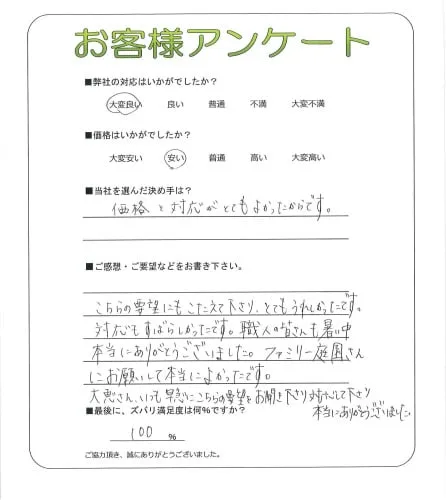 お客様アンケート
■弊社の対応はいかがでしたか？
大変良い 良い 普通 不満 大変不満
■価格はいかがでしたか？
大変安い 安い 普通 高い 大変高い
■当社を選んだ決め手は？
価格と対応がとてもよかったからです。
■ご感想・ご要望などをお書き下さい。
こちらの要望にもこたえて下さり、とてもうれしかったです。
対応もすばらしかったです。職人の皆さんも暑い中
本当にありがとうございました。ファミリー庭園さん
にお願いして本当によかったです。
大恵さん、いつも早急にこちらの要望をお聞き下さり対応して下さり
本当にありがとうございました。
■最後に、ズバリ満足度は何%ですか？
100 %
ご協力頂き、誠にありがとうございました。